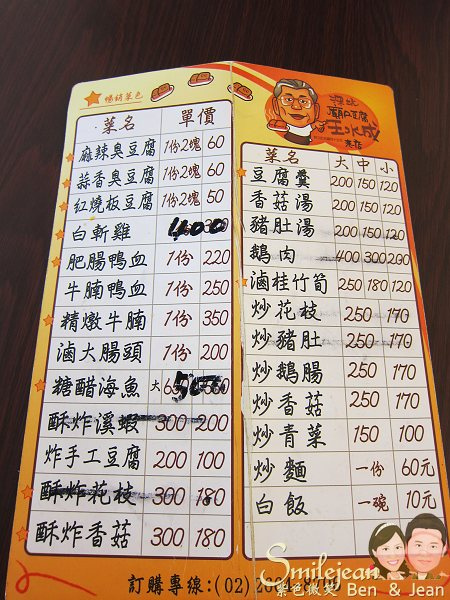 暢銷菜色
菜名 單價
麻辣臭豆腐 1份2塊 60
蒜香臭豆腐 1份2塊 60
紅燒板豆腐 1份2塊 50
白斬雞 400
肥腸鴨血 1份 220
牛腩鴨血 1份 250
精燉牛腩 1份 350
滷大腸頭 1份 200
糖醋海魚 大 500
酥炸溪蝦 300 200
炸手工豆腐 200 100
酥炸花枝 300 180
酥炸香菇 300 180
深坑
廟口豆腐
王水成
老店
菜名 大 中 小
豆腐羹 200 150 120
香菇湯 200 150 120
豬肚湯 200 150 120
鵝肉 400 300 200
滷桂竹筍 250 180 120
炒花枝 250 170
炒豬肚 250 170
炒鵝腸 250 170
炒香菇 250 170
炒青菜 150 100
炒麵 一份 60元
白飯 一碗 10元
訂購專線:(02)
Smilejean
Ben & Jean